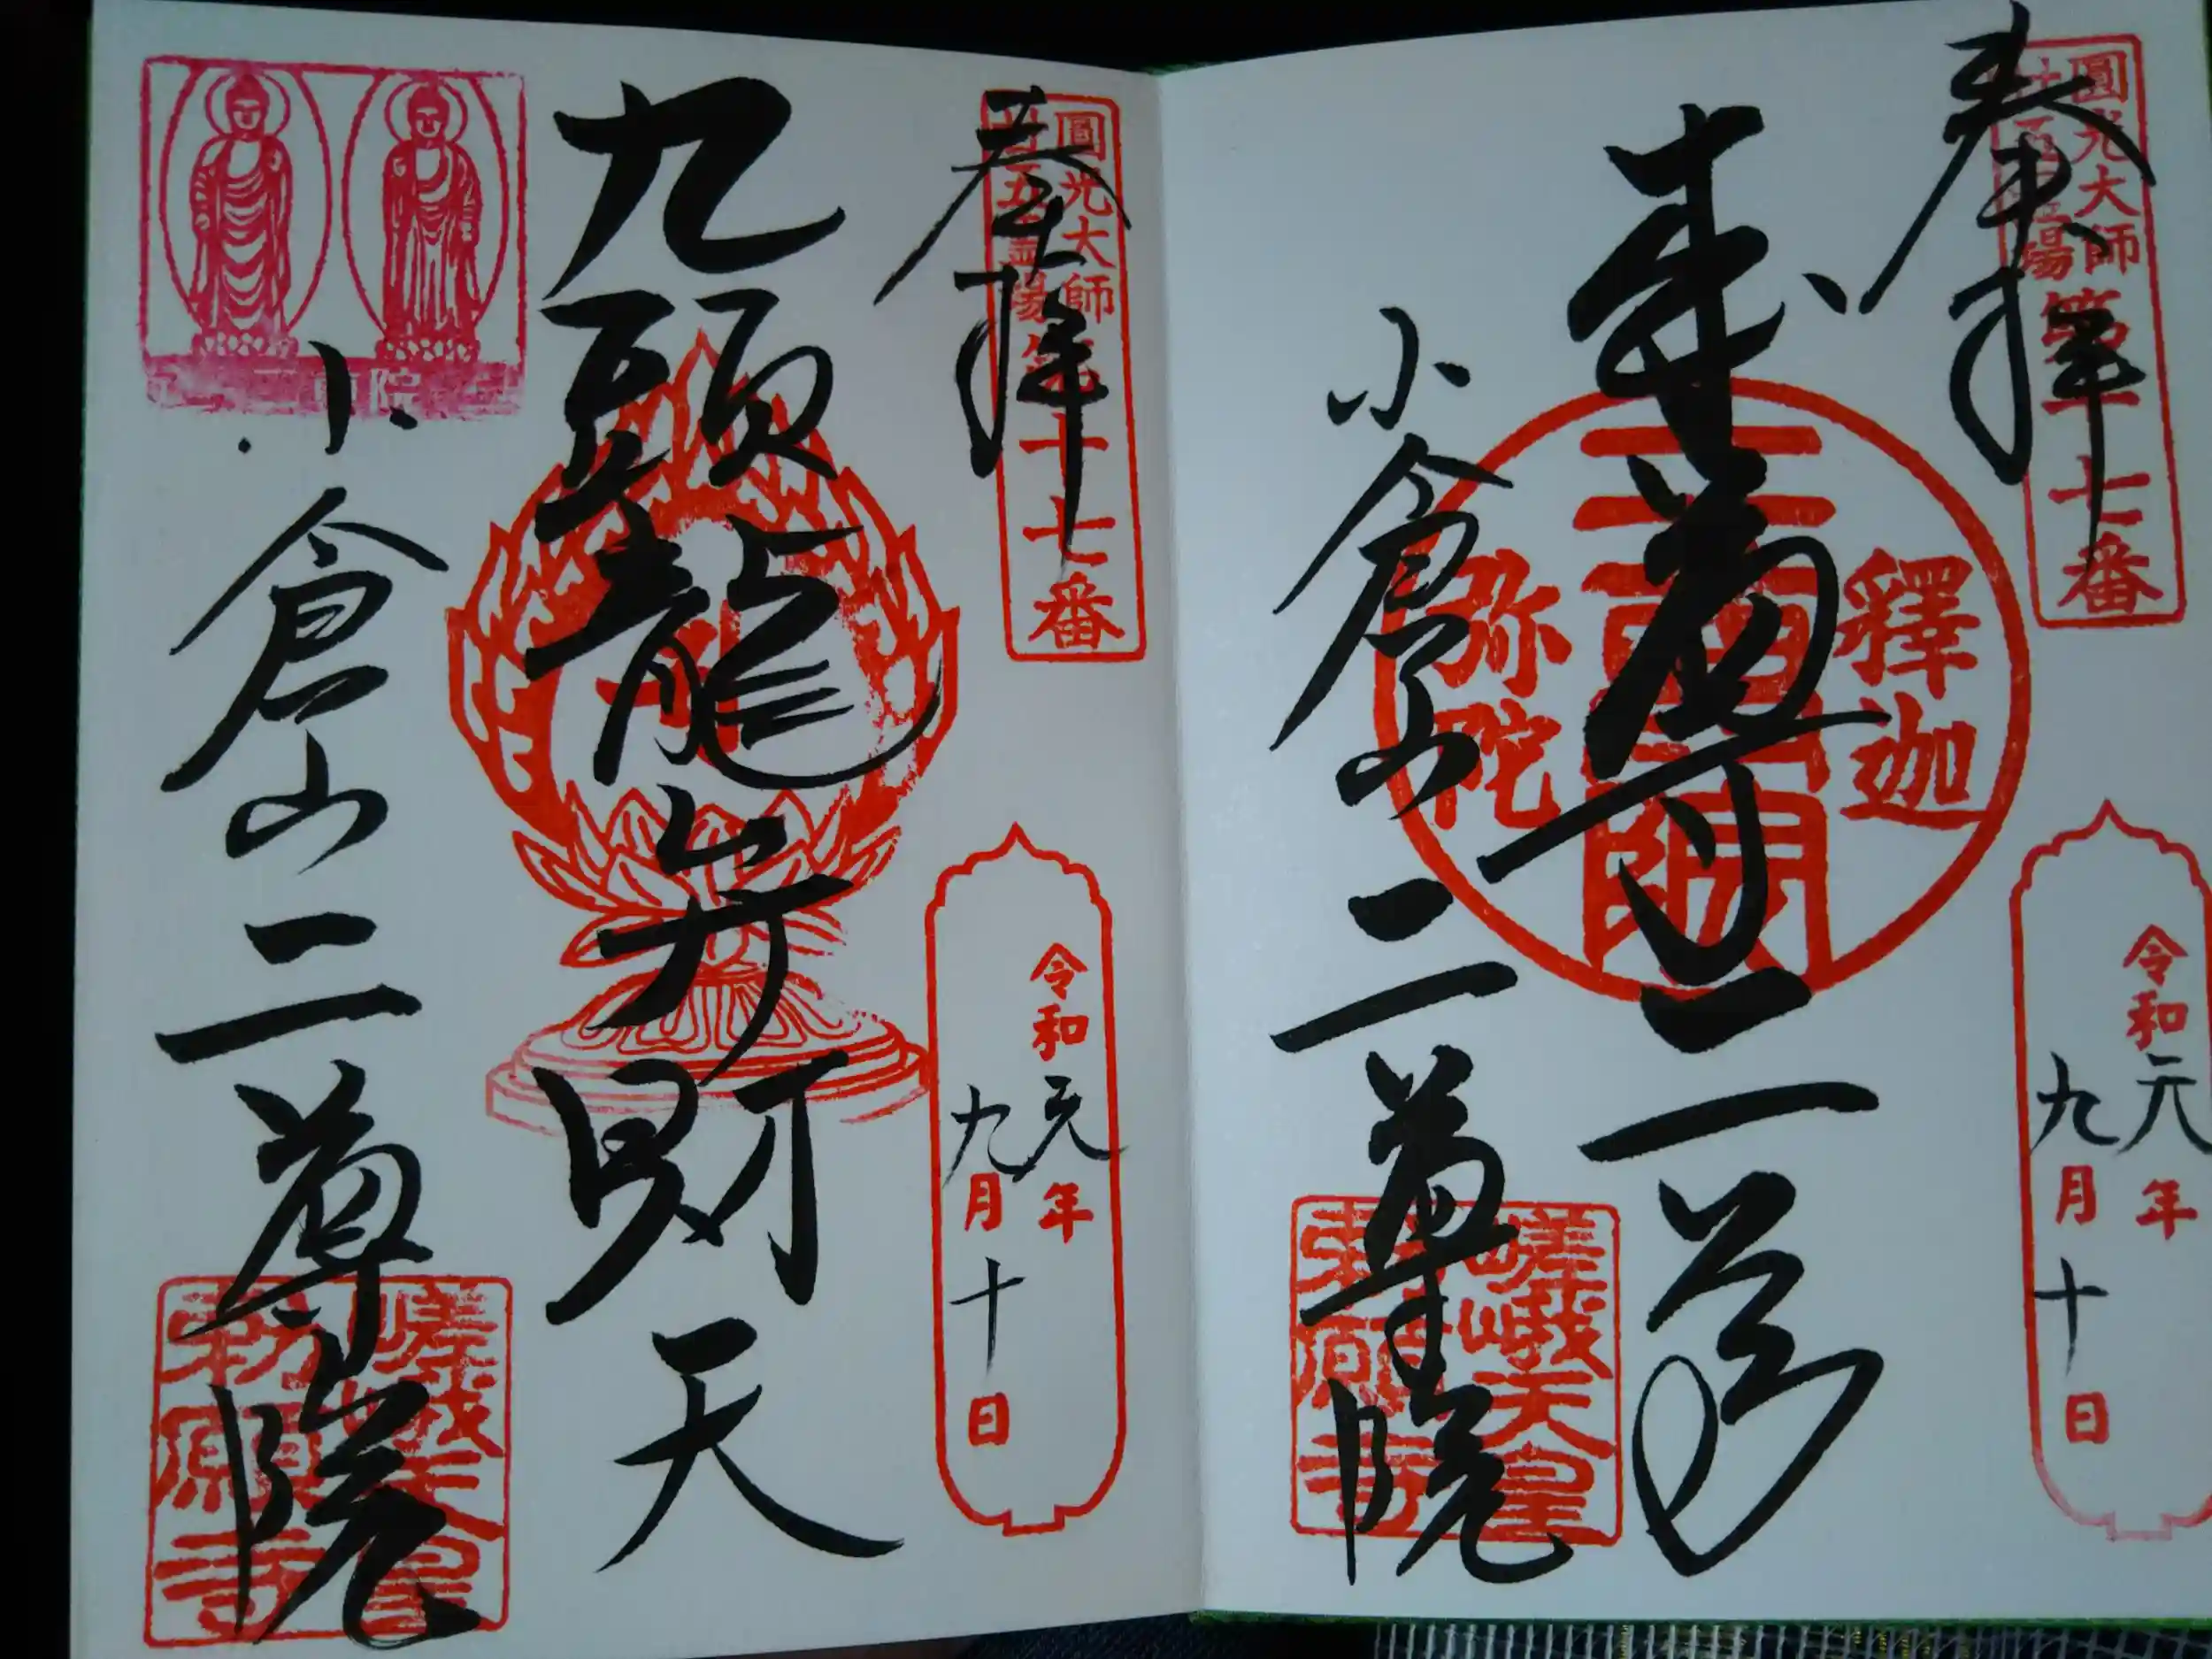 奉拝
圓光大師
廿五霊場第十七番
本尊二尊
釋迦
二尊院
弥陀
小倉山二尊院
嵯峨天皇
勅願寺
令和元年
九月十日
奉拝
圓光大師
廿五霊場第十七番
九頭龍弁財天
小倉山二尊院
嵯峨天皇
勅願寺
令和元年
九月十日